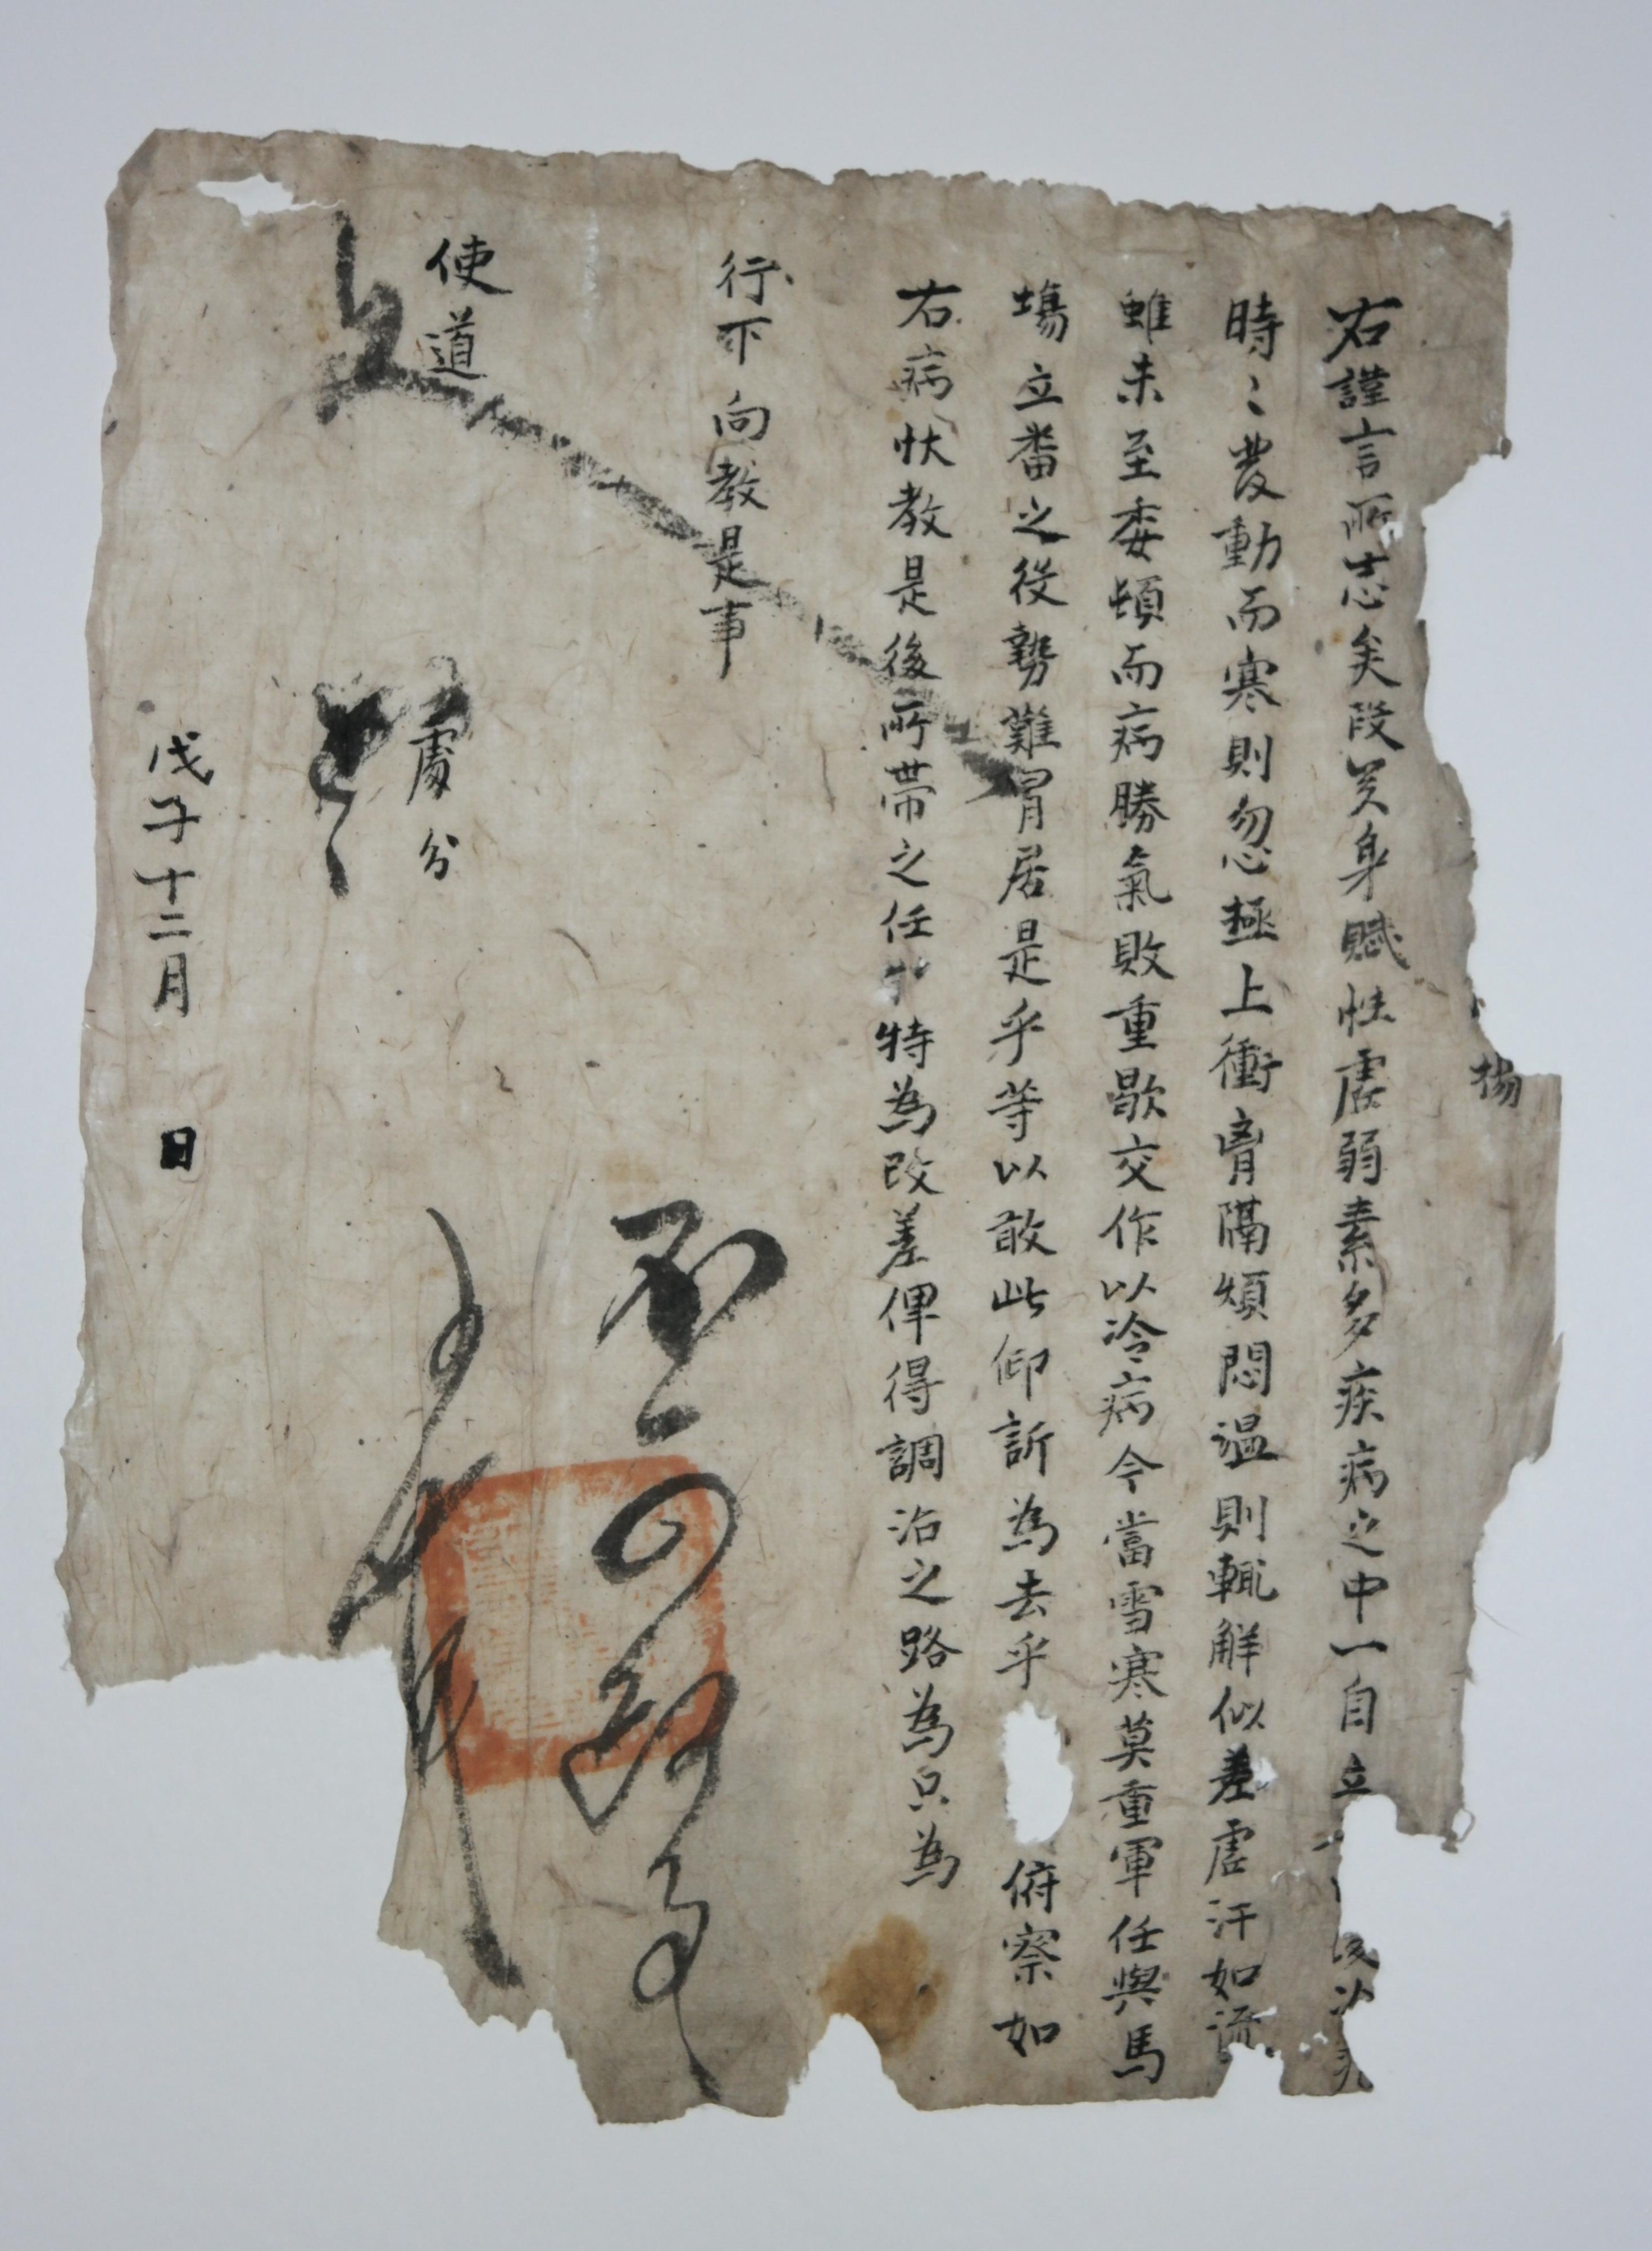 楊
右謹言所志矣段矣身賦性虛弱素多疾病之中一自立
時〻發動而寒則忽忽極上衝胷隔煩悶溫則輒解似差虛汗如流
雖未至委頓而病勝氣敗重歇交作以冷病今當雪寒莫重軍任與馬
場立番之役勢難冐居是乎等以敢此仰訴爲去乎 俯察如
右病狀教是後所帶之任 特爲改差俾得調治之路爲只爲
行下向教是事
使道 處分
戊子十二月 日